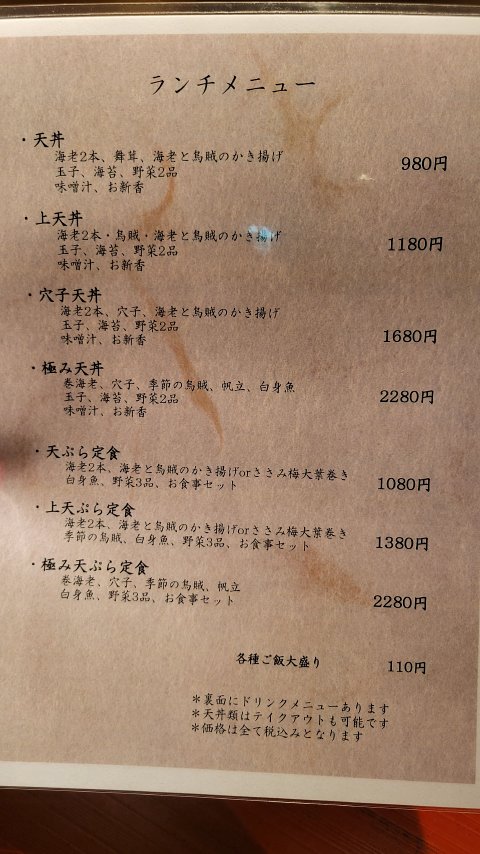 ランチメニュー
・天丼
海老2本、舞茸、海老と烏賊のかき揚げ
玉子、海苔、野菜2品
味噌汁、お新香
980円
・上天丼
海老2本・烏賊・海老と烏賊のかき揚げ
玉子、海苔、野菜2品
味噌汁、お新香
1180円
・穴子天丼
海老2本、穴子、海老と烏賊のかき揚げ
玉子、海苔、野菜2品
味噌汁、お新香
1680円
・極み天丼
巻海老、穴子、季節の烏賊、帆立、白身魚
玉子、海苔、野菜2品
味噌汁、お新香
2280円
・天ぷら定食
海老2本、海老と烏賊のかき揚げorささみ梅大葉巻き
白身魚、野菜3品、お食事セット
1080円
・上天ぷら定食
海老2本、海老と烏賊のかき揚げorささみ梅大葉巻き
季節の烏賊、白身魚、野菜3品、お食事セット
1380円
・極み天ぷら定食
巻海老、穴子、季節の烏賊、帆立
白身魚、野菜3品、お食事セット
2280円
各種ご飯大盛り
110円
＊裏面にドリンクメニューあります
＊天丼類はテイクアウトも可能です
＊価格は全て税込みとなります